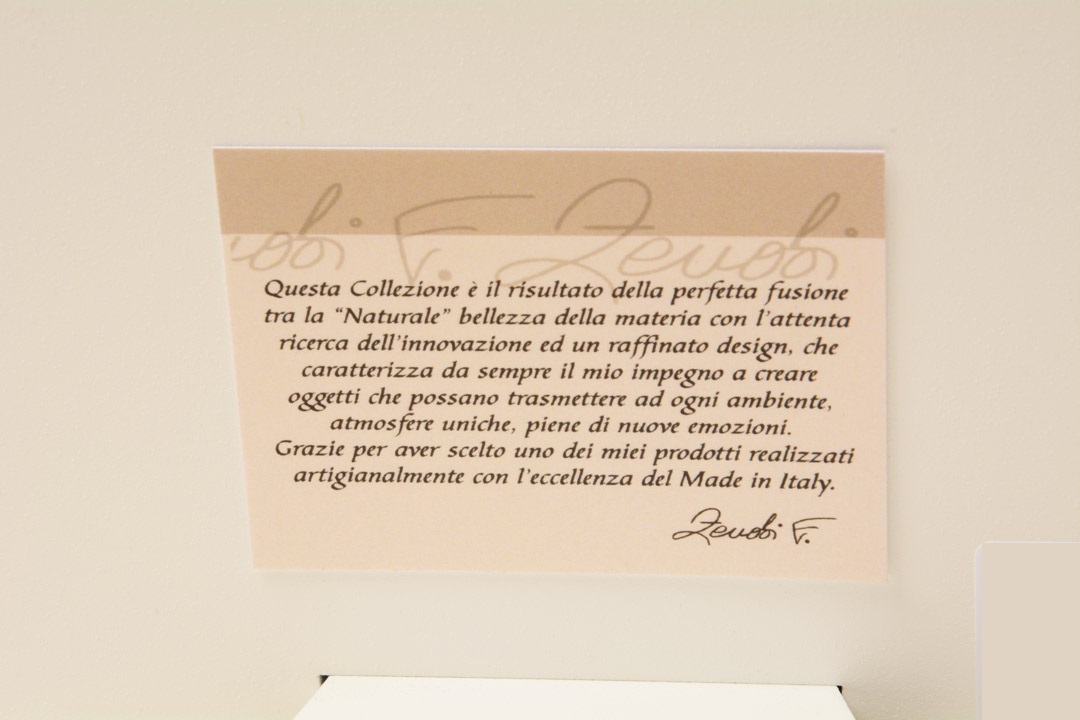 obi F. Zenobi
Questa Collezione è il risultato della perfetta fusione
tra la “Naturale” bellezza della materia con l’attenta
ricerca dell’innovazione ed un raffinato design, che
caratterizza da sempre il mio impegno a creare
oggetti che possano trasmettere ad ogni ambiente,
atmosfere uniche, piene di nuove emozioni.
Grazie per aver scelto uno dei miei prodotti realizzati
artigianalmente con l’eccellenza del Made in Italy.
Zenobi F.